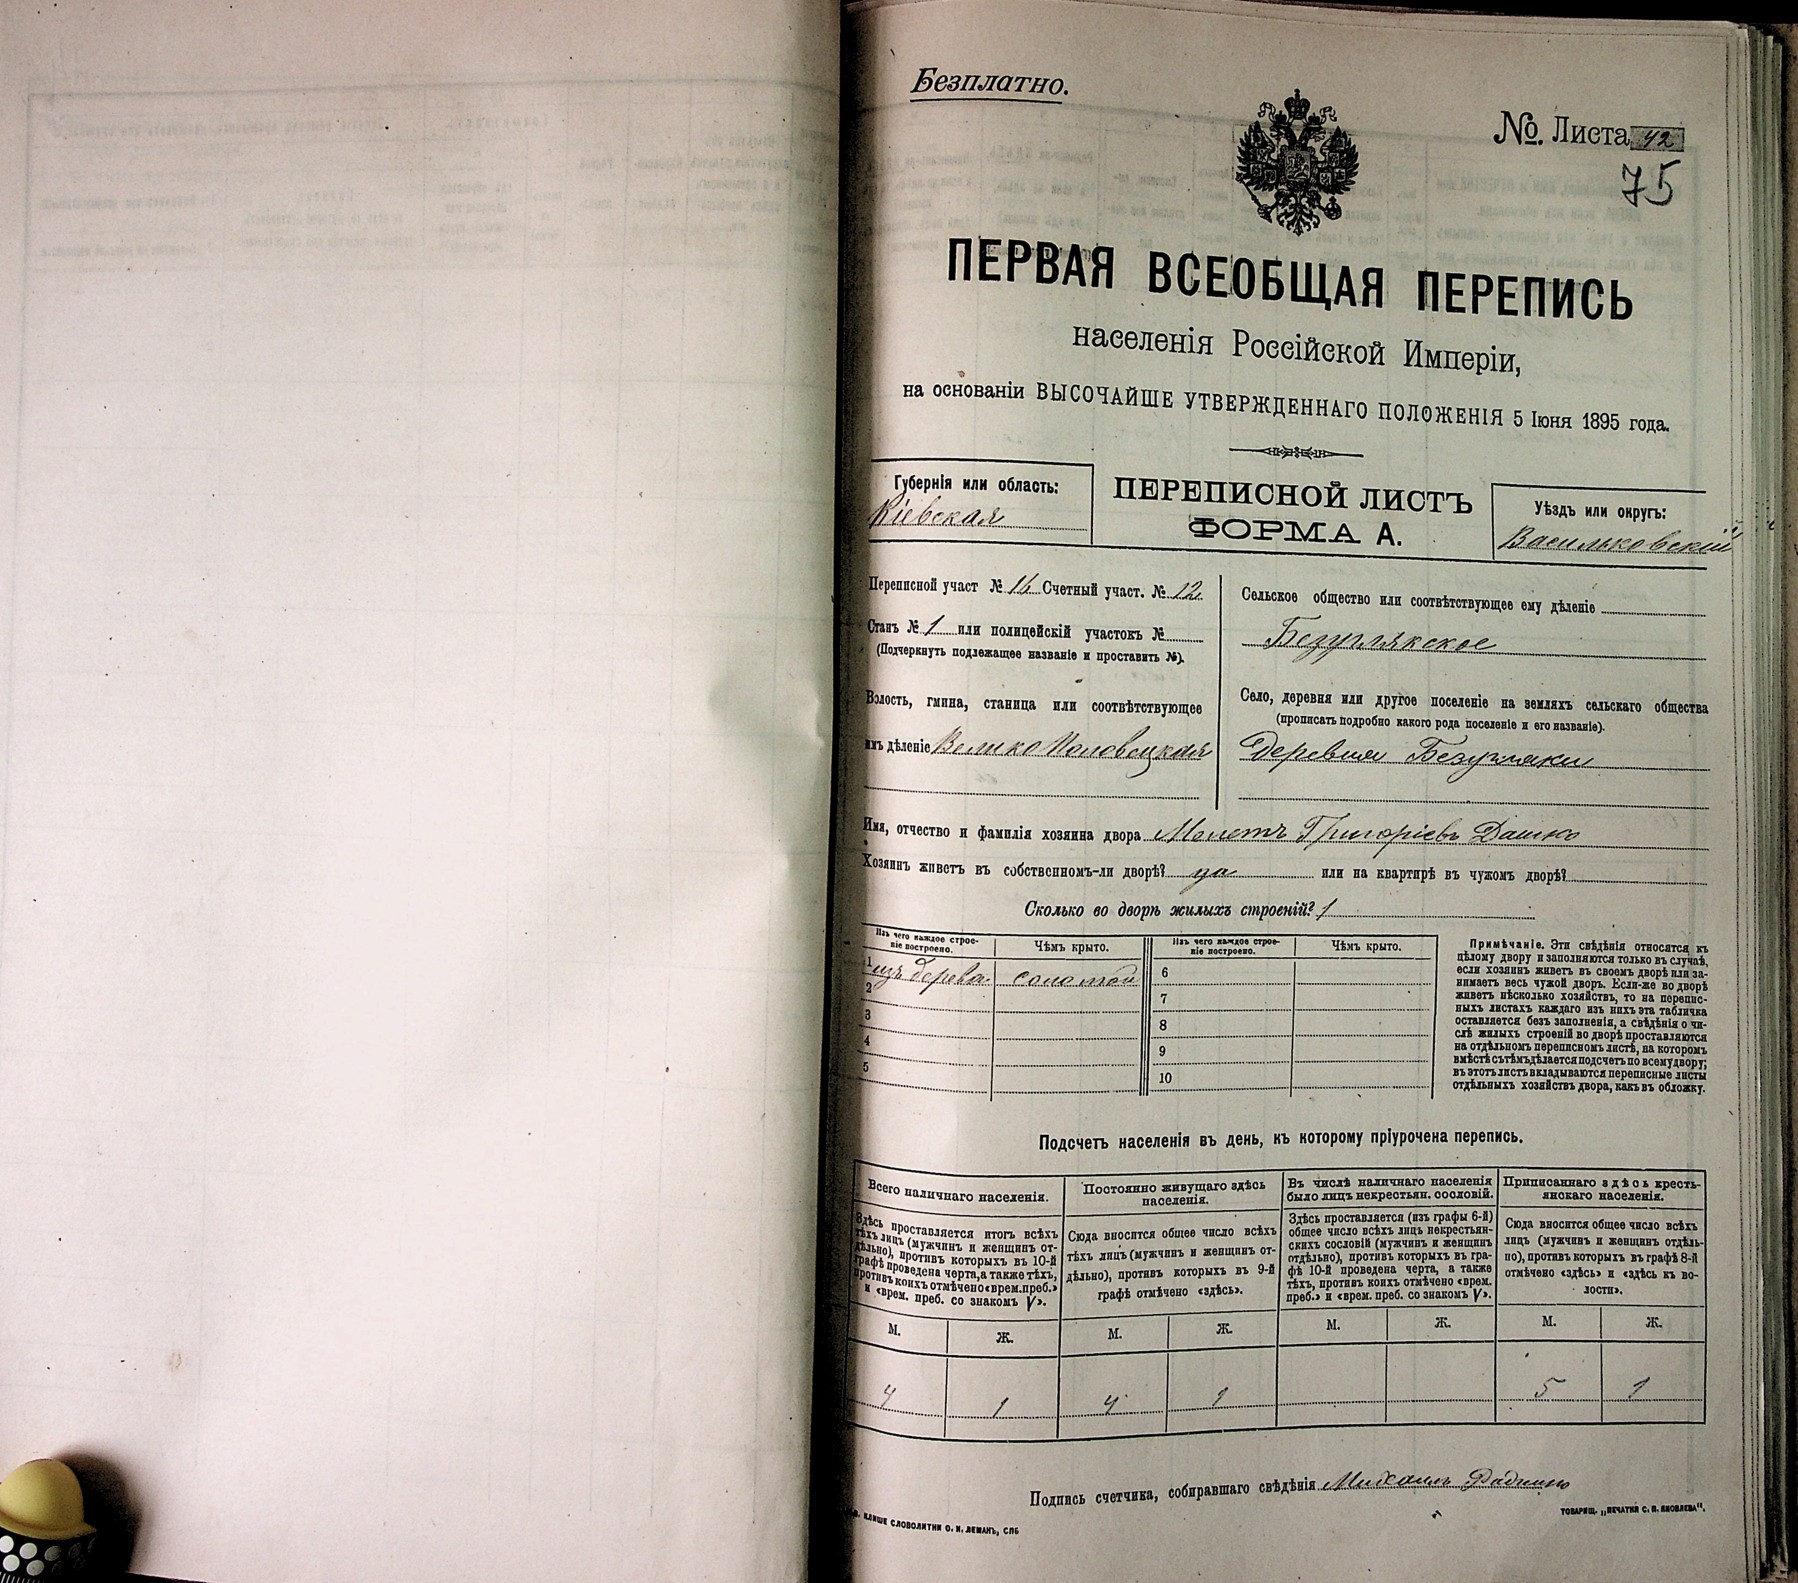 Безплатно.
№. Листа 42
75
ПЕРВАЯ ВСЕОБЩАЯ ПЕРЕПИСЬ
населенія Россійской Имперіи,
на основаніи ВЫСОЧАЙШЕ УТВЕРЖДЕННАГО ПОЛОЖЕНІЯ 5 Іюня 1895 года.
Губернія или область:
Кіевская
ПЕРЕПИСНОЙ ЛИСТЪ
ФОРМА А.
Уѣздъ или округъ:
Васильковскій
Переписной участ № 16 Счетный участ. № 12
Станъ № 1 или полицейскій участокъ №
(Подчеркнуть подлежащее названіе и проставить №).
Волость, гмина, станица или соотвѣтствующее
имъ дѣленіе Велико Половецкая
Сельское общество или соотвѣтствующее ему дѣленіе
Безуглякское
Село, деревня или другое поселеніе на земляхъ сельскаго общества
(прописать подробно какого рода поселеніе и его названіе).
деревня Безугляки
Имя, отчество и фамилія хозяина двора Григоріевъ Дашко
Хозяинъ живетъ въ собственномъ-ли дворѣ? да или на квартирѣ въ чужомъ дворѣ?
Сколько во дворѣ жилыхъ строеній? 1
Изъ чего каждое строе-
ніе построено.
Чѣмъ крыто.
Изъ чего каждое строе-
ніе построено.
Чѣмъ крыто.
1 изъ дерева соломой
2
3
4
5
6
7
8
9
10
Примѣчаніе. Эти свѣдѣнія относятся къ
цѣлому двору и заполняются только въ случаѣ,
если хозяинъ живетъ въ своемъ дворѣ или за-
нимаетъ весь чужой дворъ. Если-же во дворѣ
живетъ нѣсколько хозяйствъ, то на перепис-
ныхъ листахъ каждаго изъ нихъ эта табличка
оставляется безъ заполненія, а свѣдѣнія о чи-
слѣ жилыхъ строеній во дворѣ проставляются
на отдѣльномъ переписномъ листѣ, на которомъ
вмѣстѣ съ тѣмъ дѣлается подсчетъ по всему двору;
въ этотъ листъ вкладываются переписные листы
отдѣльныхъ хозяйствъ двора, какъ въ обложку.
Подсчетъ населенія въ день, къ которому пріурочена перепись.
Всего наличнаго населенія.
Здѣсь проставляется итогъ всѣхъ
тѣхъ лицъ (мужчинъ и женщинъ от-
дѣльно), противъ которыхъ въ 10-й
графѣ проведена черта, а также тѣхъ,
противъ коихъ отмѣчено «врем. преб.»
и «врем. преб. со знакомъ V».
Постоянно живущаго здѣсь
населенія.
Сюда вносится общее число всѣхъ
тѣхъ лицъ (мужчинъ и женщинъ от-
дѣльно), противъ которыхъ въ 9-й
графѣ отмѣчено «здѣсь».
Въ числѣ наличнаго населенія
было лицъ некрестьян. сословій.
Здѣсь проставляется (изъ графы 6-й)
общее число всѣхъ лицъ некрестьян-
скихъ сословій (мужчинъ и женщинъ
отдѣльно), противъ которыхъ въ гра-
фѣ 10-й проведена черта, а также
тѣхъ, противъ коихъ отмѣчено «врем.
преб.» и «врем. преб. со знакомъ V».
Приписаннаго здѣсь кресть-
янскаго населенія.
Сюда вносится общее число всѣхъ
лицъ (мужчинъ и женщинъ отдѣль-
но), противъ которыхъ въ графѣ 8-й
отмѣчено «здѣсь» и «здѣсь къ во-
лости».
М. Ж. М. Ж. М. Ж. М. Ж.
4 1 4 1 5 1
Подпись счетчика, собиравшаго свѣдѣнія Михаилъ
КЛИШЕ СЛОВОЛИТНИ О. И. ЛЕМАНЪ, СПБ
ТОВАРИЩ. „ПЕЧАТНЯ С. П. ЯКОВЛЕВА“.